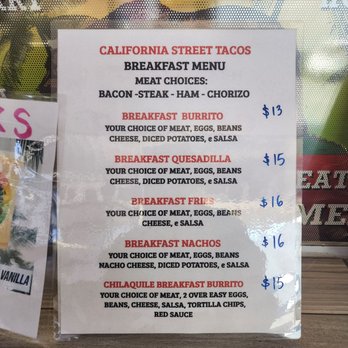 CALIFORNIA STREET TACOS
BREAKFAST MENU
MEAT CHOICES:
BACON -STEAK - HAM - CHORIZO
BREAKFAST BURRITO $13
YOUR CHOICE OF MEAT, EGGS, BEANS
CHEESE, DICED POTATOES, e SALSA
BREAKFAST QUESADILLA $15
YOUR CHOICE OF MEAT, EGGS, BEANS
CHEESE, DICED POTATOES, e SALSA
BREAKFAST FRIES $16
YOUR CHOICE OF MEAT, EGGS, BEANS
CHEESE, e SALSA
BREAKFAST NACHOS $16
YOUR CHOICE OF MEAT, EGGS, BEANS
NACHO CHEESE, DICED POTATOES, e SALSA
CHILAQUILE BREAKFAST BURRITO $15
YOUR CHOICE OF MEAT, 2 OVER EASY EGGS,
BEANS, CHEESE, SALSA, TORTILLA CHIPS,
RED SAUCE
KS
VANILLA
EAT
ME